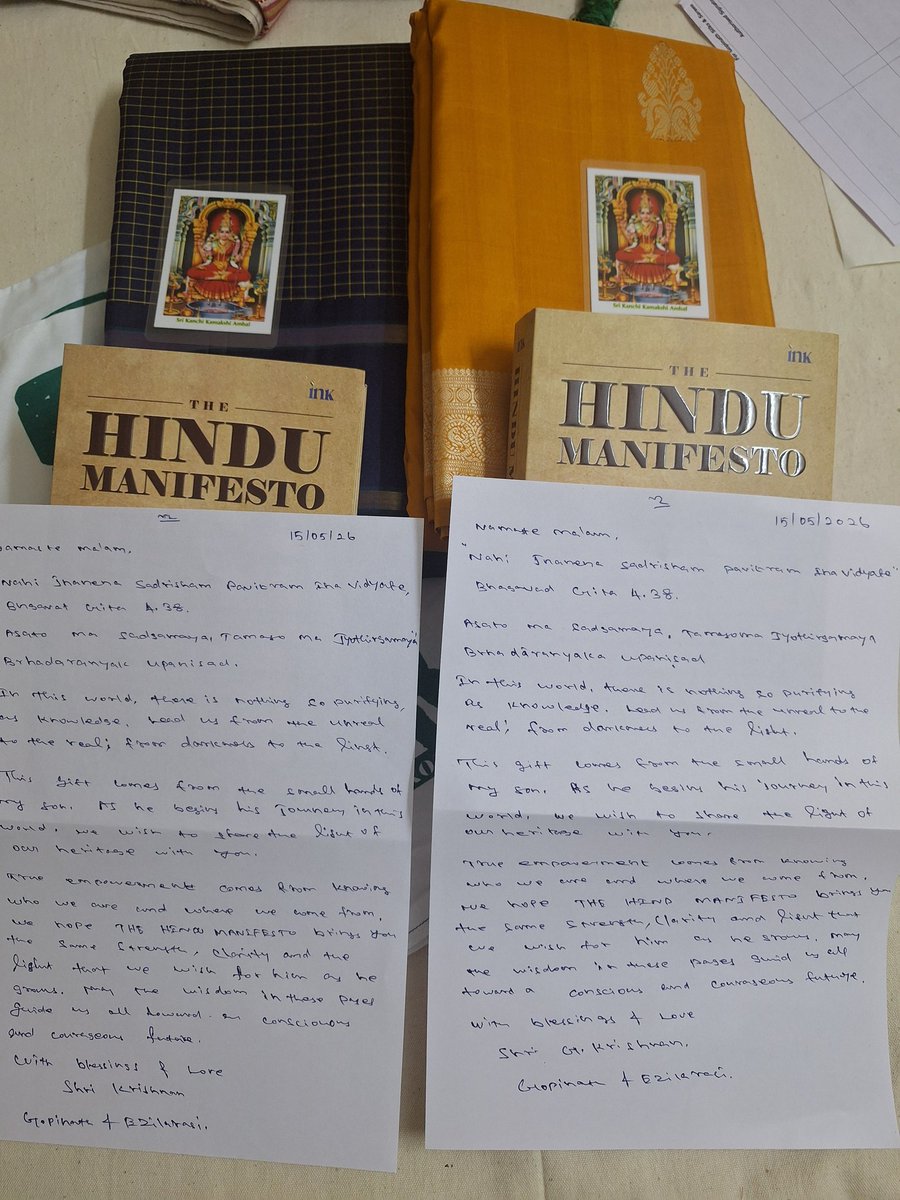 For Gopinath Silks & Sarees
Authorised Signatory
Sri Kanchi Kamakshi Ambal
Sri Kanchi Kamakshi Ambal
ink
THE
HINDU
MANIFESTO
ink
THE
HINDU
MANIFESTO
15/05/26
Namaste ma'am,
Nahi Jnanena Sadrisham Pavitram iha vidyate,
Bhgavat Gita 4.38.
Asato ma sadgamaya, Tamaso ma Jyothirgamaya
Brhadaranyak upanisad.
In this world, there is nothing so purifying,
as knowledge. Lead us from the unreal
to the real; from darkness to the light.
This gift comes from the small hands of
my son. As he begins his Journey in this
world, we wish to share the light of
our heritage with you.
True empowerment comes from knowing
who we are and where we come from.
we hope THE HINDU MANIFESTO brings you
the same strength, clarity and the
light that we wish for him as he
grows. may the wisdom in these pages
guide us all toward an conscious
and courageous future.
with blessings & Love
Shri Krishnan
Gopinath & Ezilarasi.
15/05/2026
Namaste ma'am,
"Nahi Jnanena sadrisham pavitram iha vidyate"
Bhagavad Gita 4.38.
Asato ma sadgamaya, Tamasoma Jyothirgamaya
Brhadāranyaka upaniṣad
In this world, there is nothing so purifying
as knowledge. Lead us from the unreal to the
real; from darkness to the light.
This gift comes from the small hands of
my son. As he begins his journey in this
world, we wish to share the light of
our heritage with you.
True empowerment comes from knowing
who we are and where we come from.
we hope THE HIND MANIFESTO brings you
the same strength, clarity and light that
we wish for him as he grows. may
the wisdom in these pages guid us all
toward a conscious and courageous future.
with blessings & Love
Shri G. Krishnan.
Gopinath & Ezilarasi.